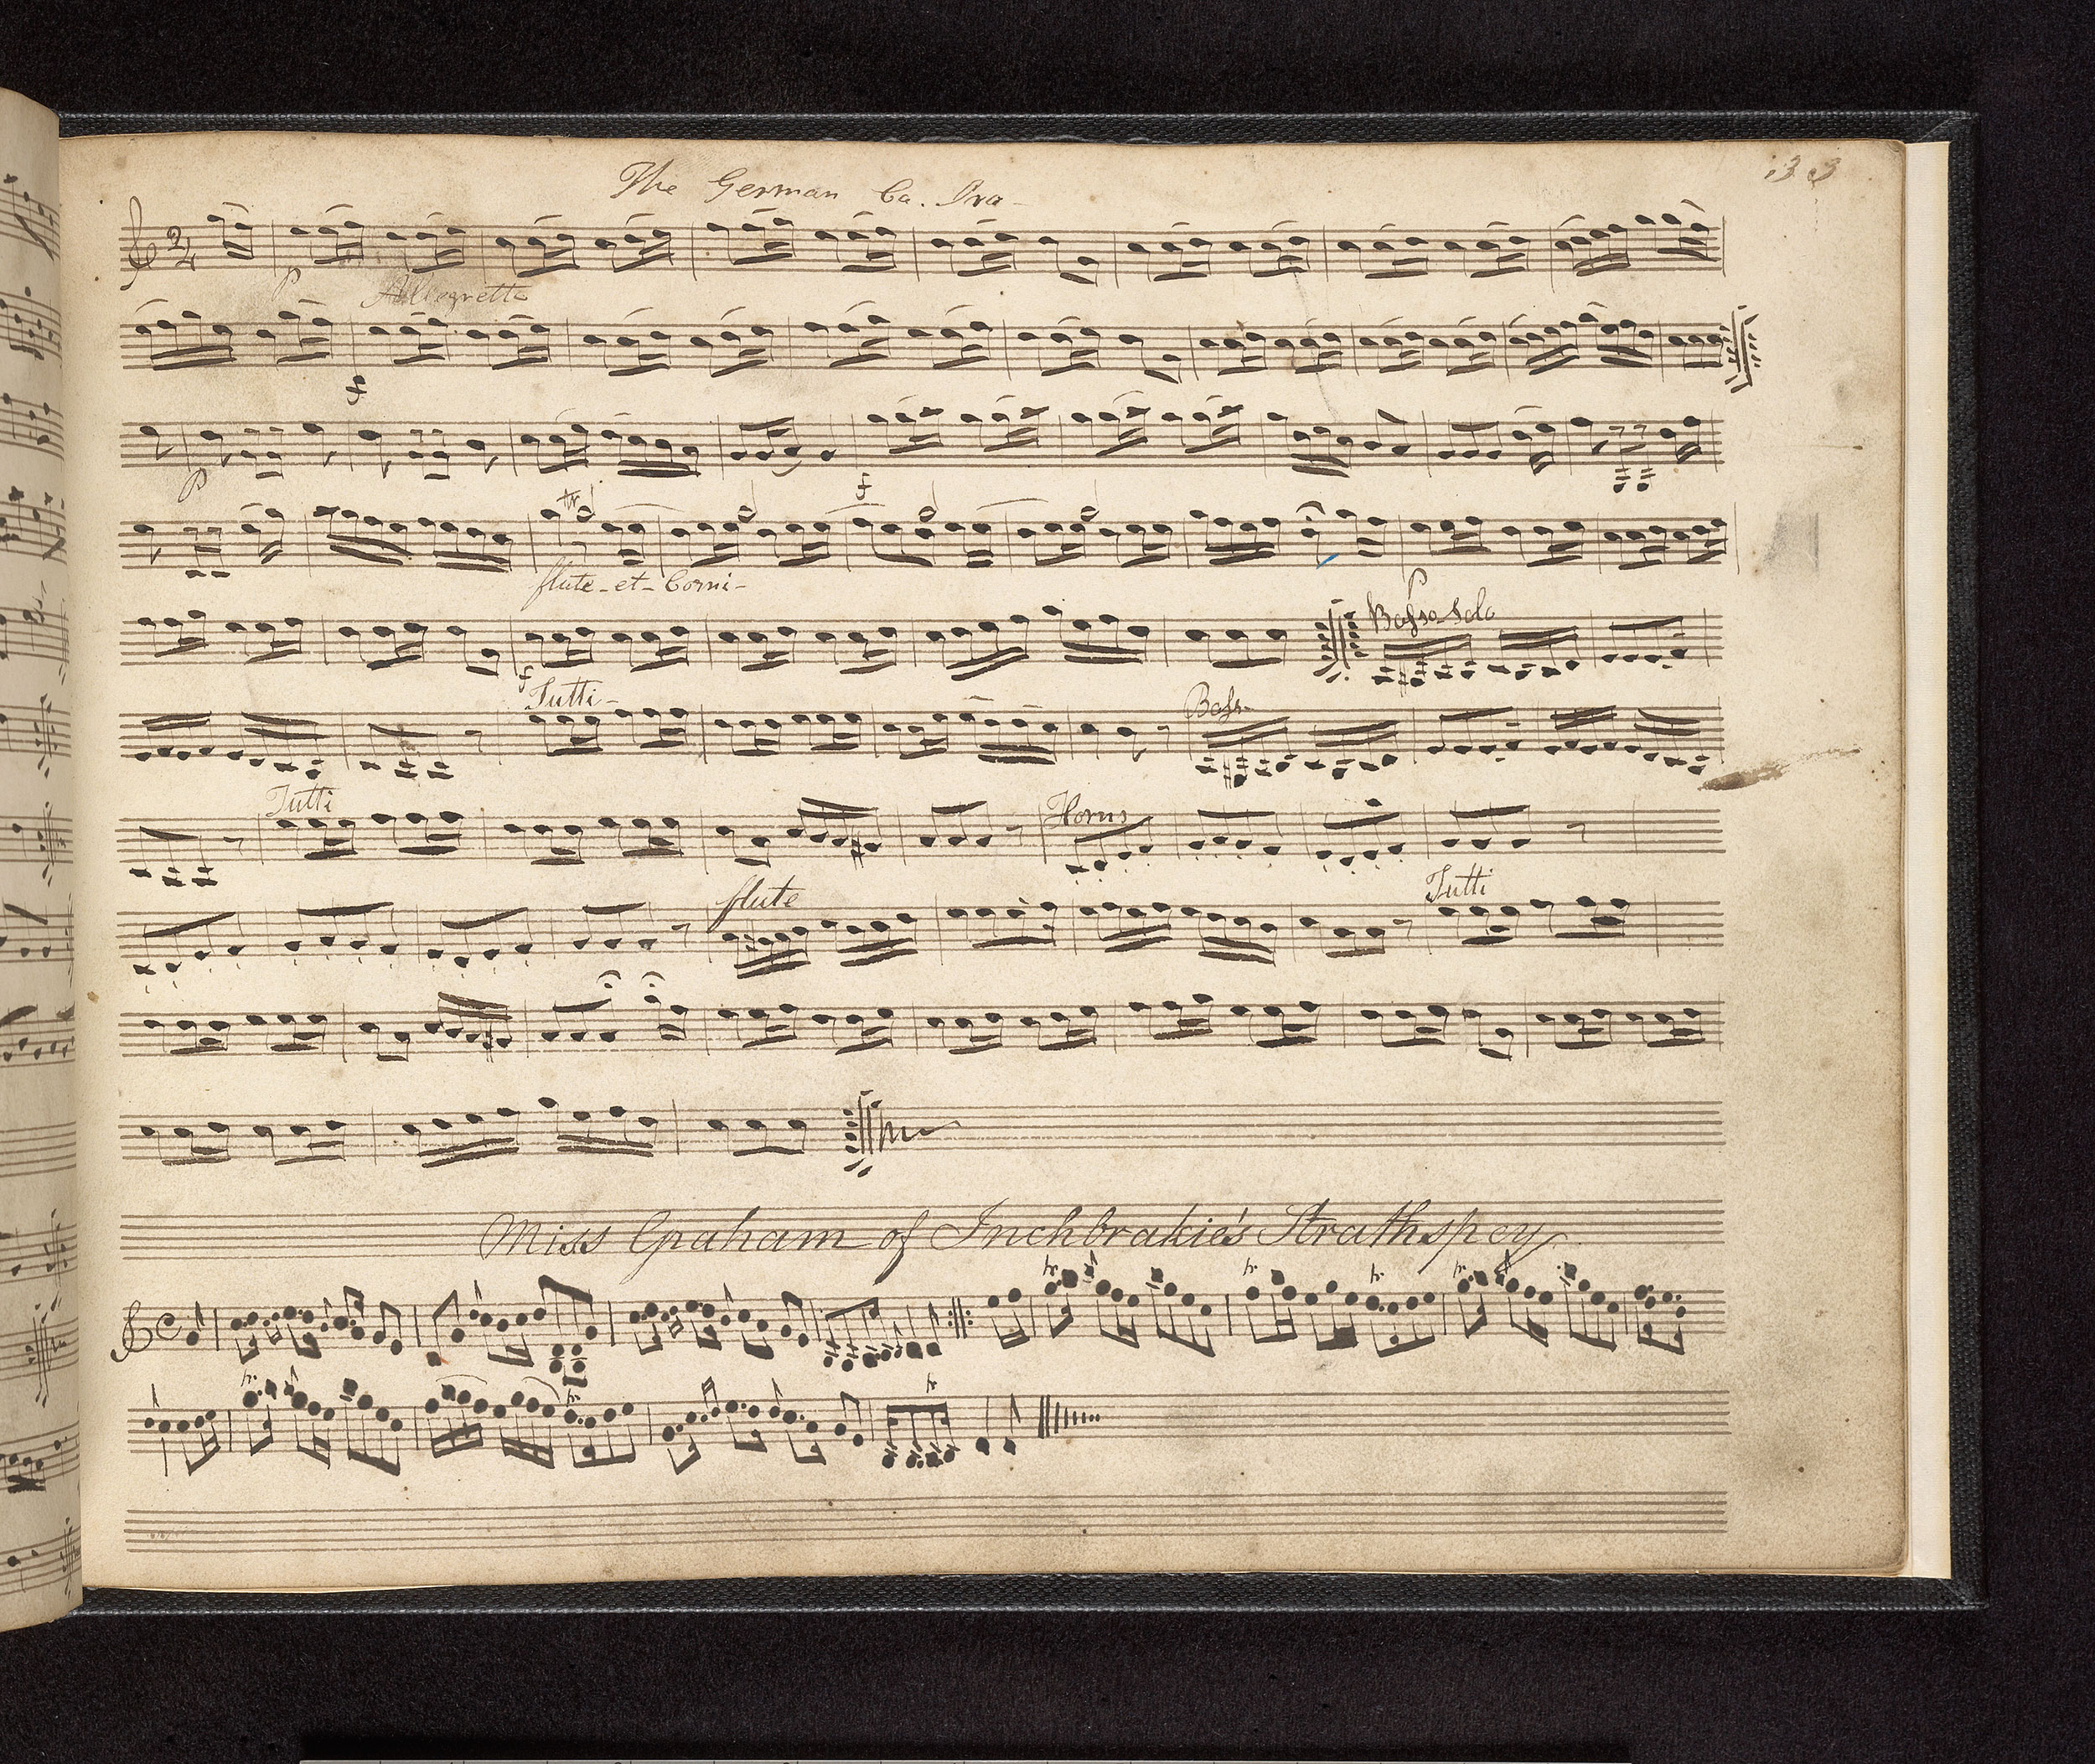 The German Ca. Ira -
133
P Allegretto
f
P f
tr
flute - et - Corni -
P
Basso Solo
f
Tutti - Bass
Tutti Horns
flute Tutti
Miss Graham of Inchbrakie's Strathspey
tr tr tr tr
tr tr tr